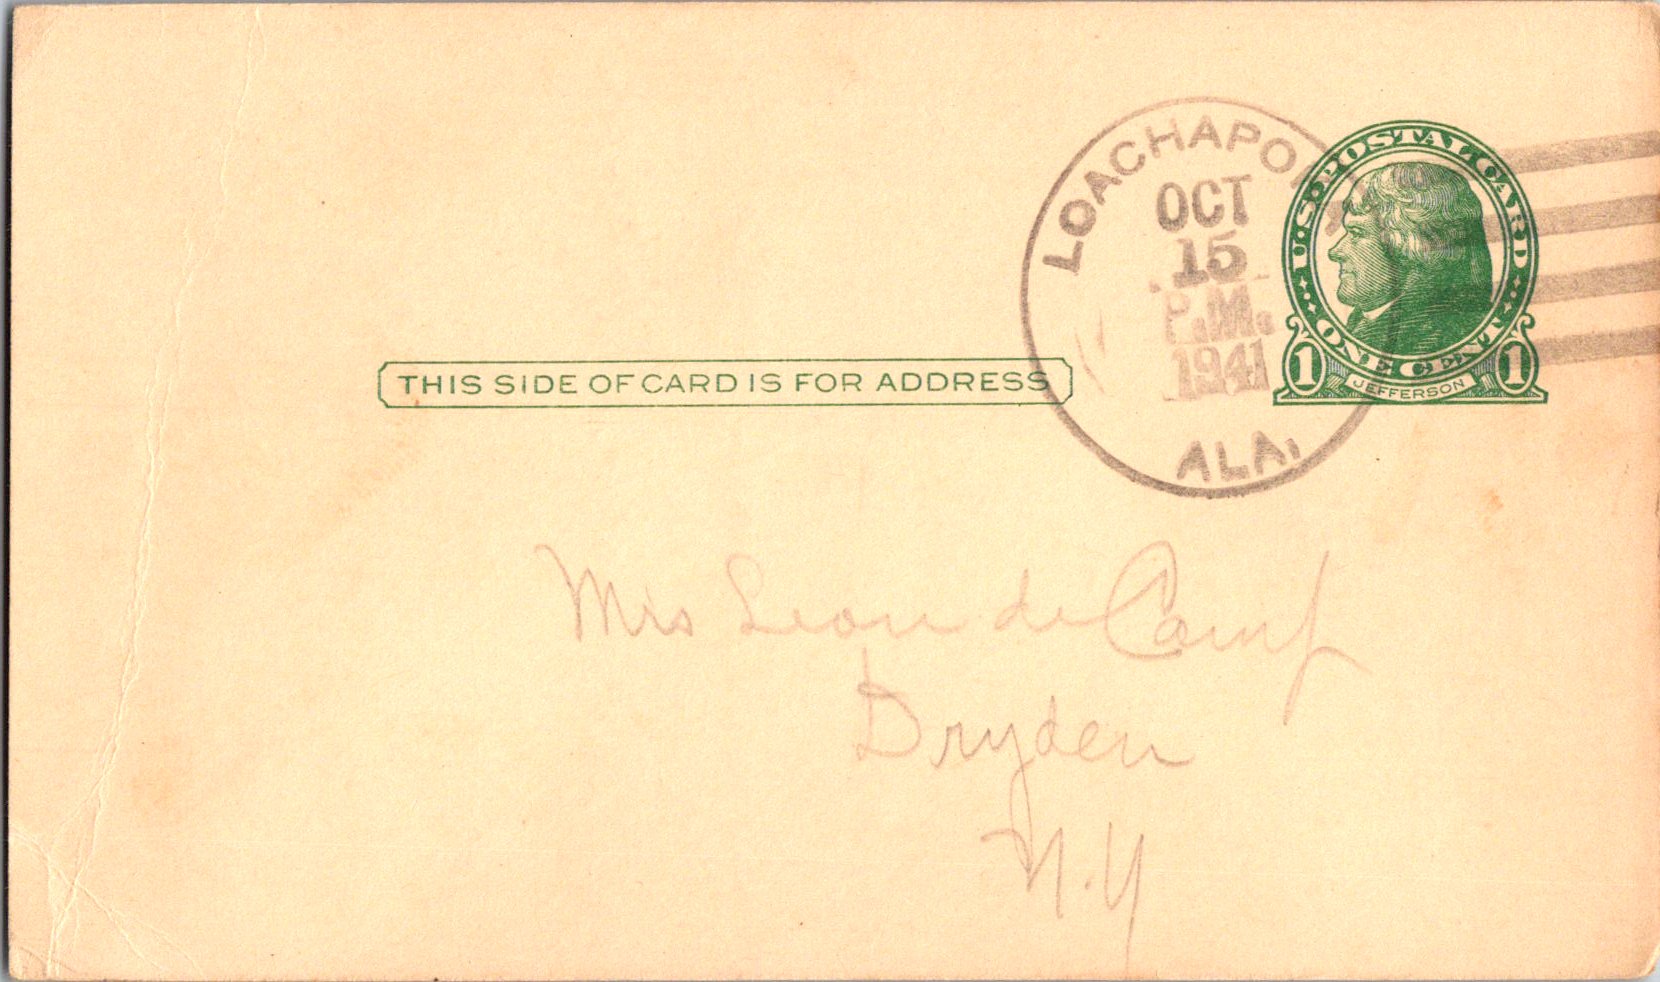 LOACHAPOKA
OCT
15
P.M.
1941
ALA.
U·S·POSTAL CARD
ONE CENT
1 JEFFERSON 1
THIS SIDE OF CARD IS FOR ADDRESS
Mrs Leon de Camp
Dryden
N.Y